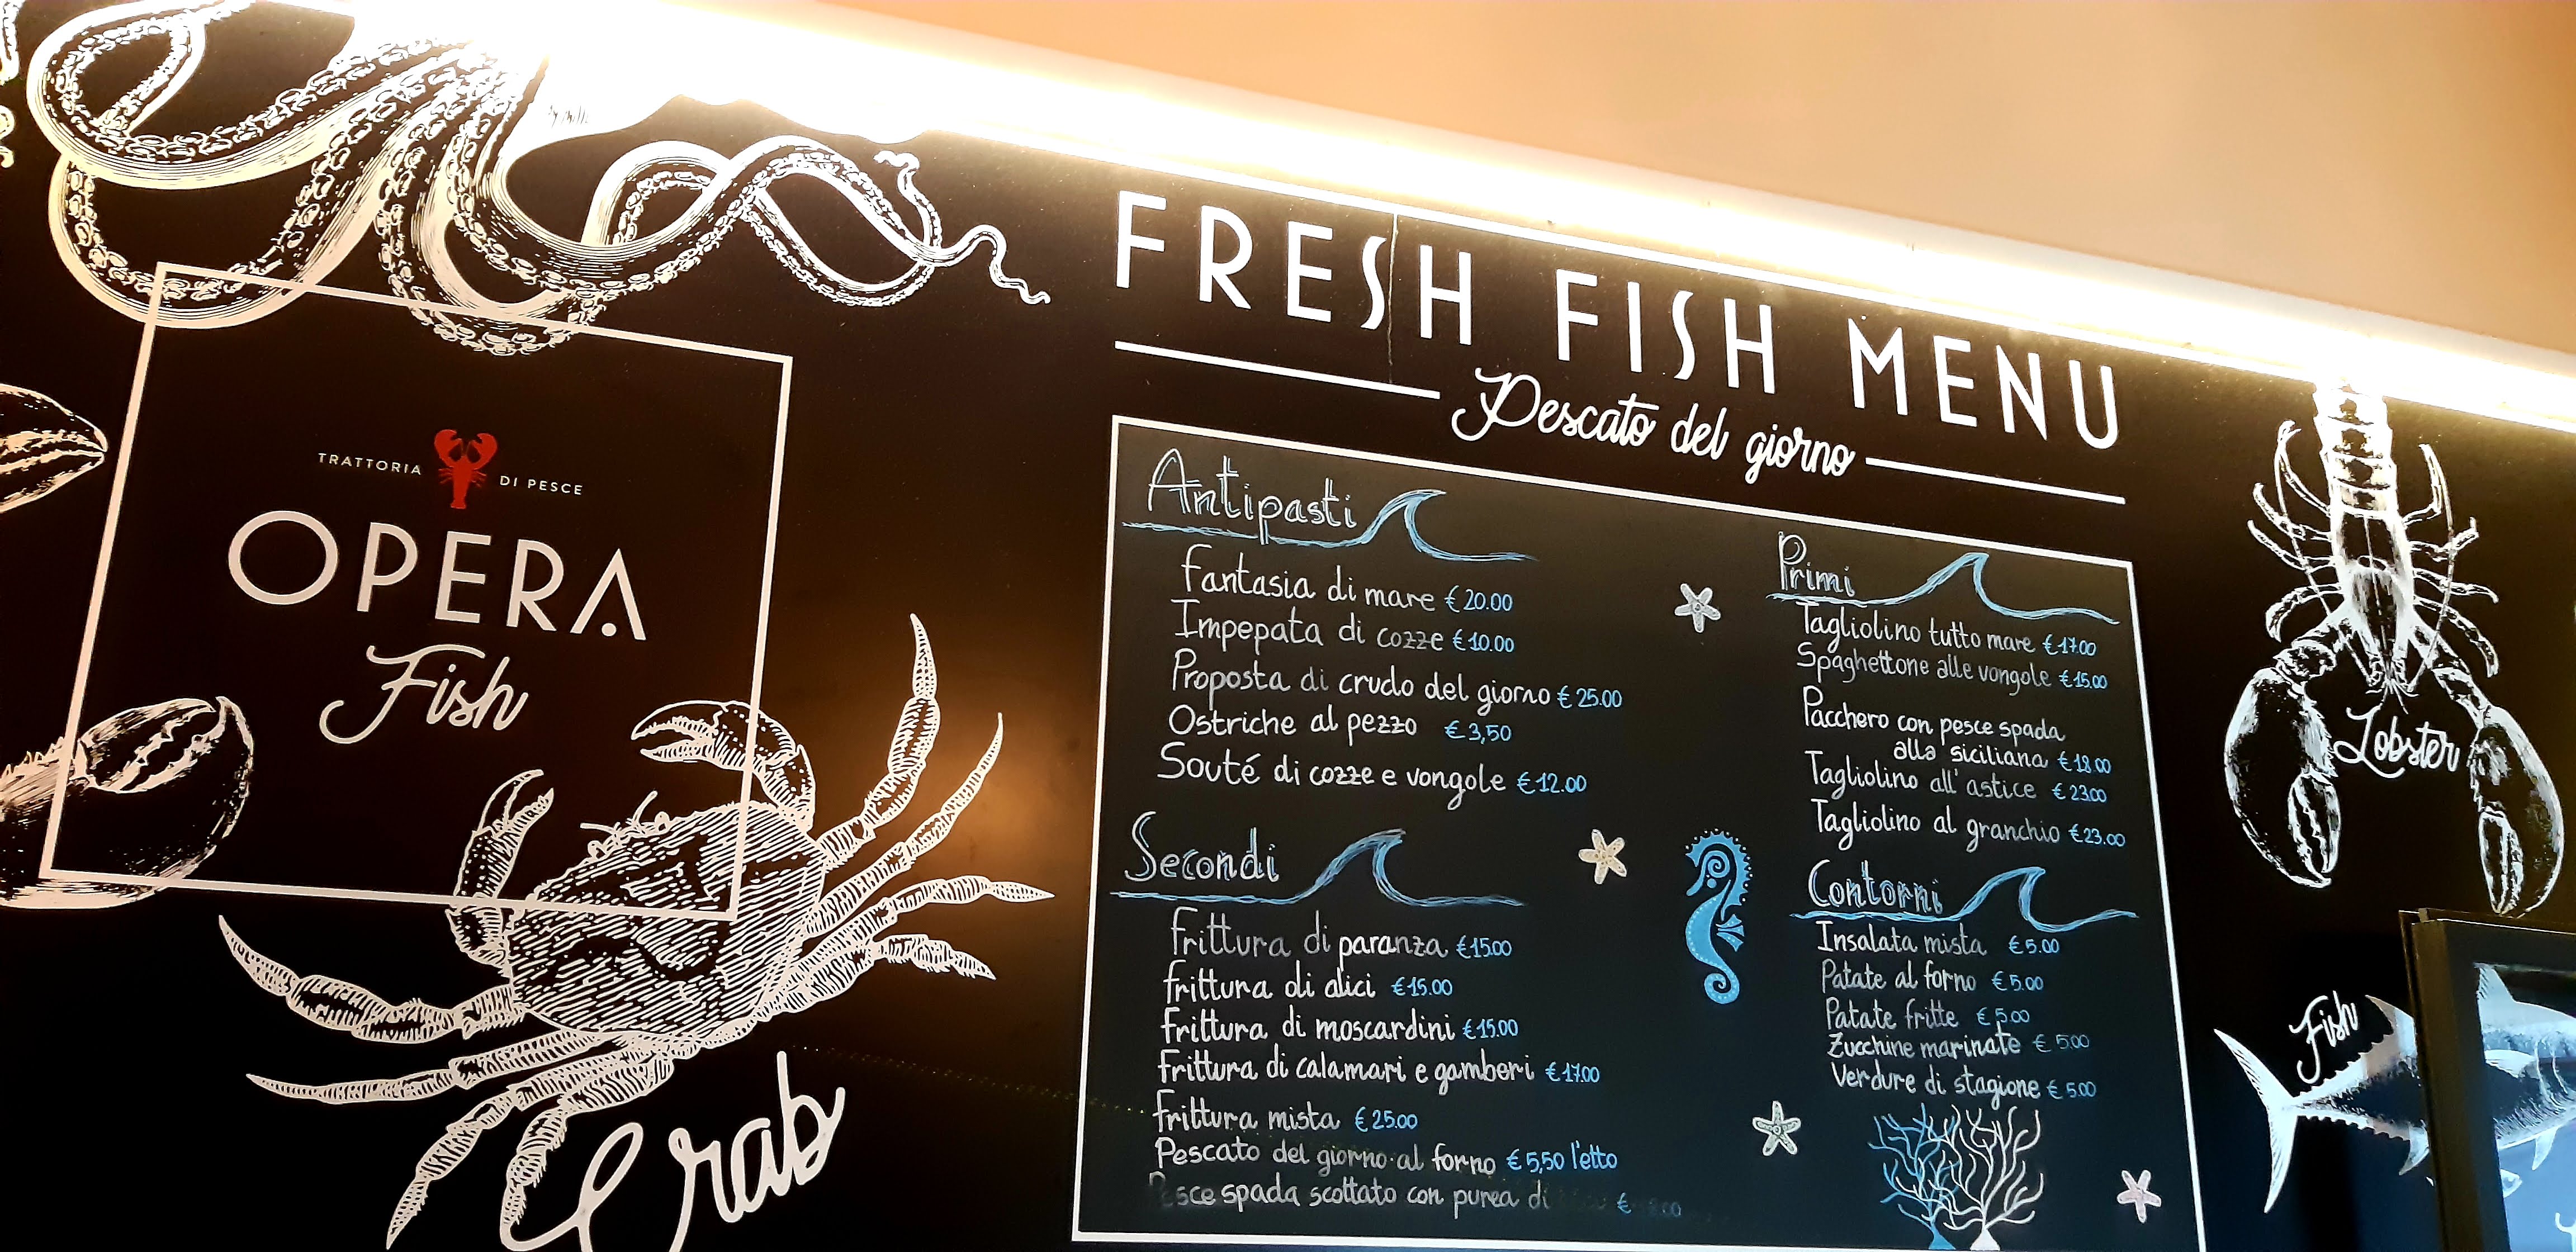 TRATTORIA DI PESCE
OPERA
Fish
Crab
FRESH FISH MENU
Pescato del giorno
Antipasti
Fantasia di mare € 20.00
Impepata di cozze € 10.00
Proposta di crudo del giorno € 25.00
Ostriche al pezzo € 3,50
Souté di cozze e vongole € 12.00
Secondi
Frittura di paranza € 15.00
frittura di alici € 15.00
Frittura di moscardini € 15.00
Frittura di calamari e gamberi € 17.00
frittura mista € 25.00
Pescato del giorno al forno € 5,50 l'etto
Pesce spada scottato con purea di €
Primi
Tagliolino tutto mare € 17.00
Spaghettone alle vongole € 15.00
Pacchero con pesce spada
alla siciliana € 18.00
Tagliolino all'astice € 23.00
Tagliolino al granchio € 23.00
Contorni
Insalata mista € 5.00
Patate al forno € 5.00
Patate fritte € 5.00
Zucchine marinate € 5.00
Verdure di stagione € 5.00
Lobster
Fish